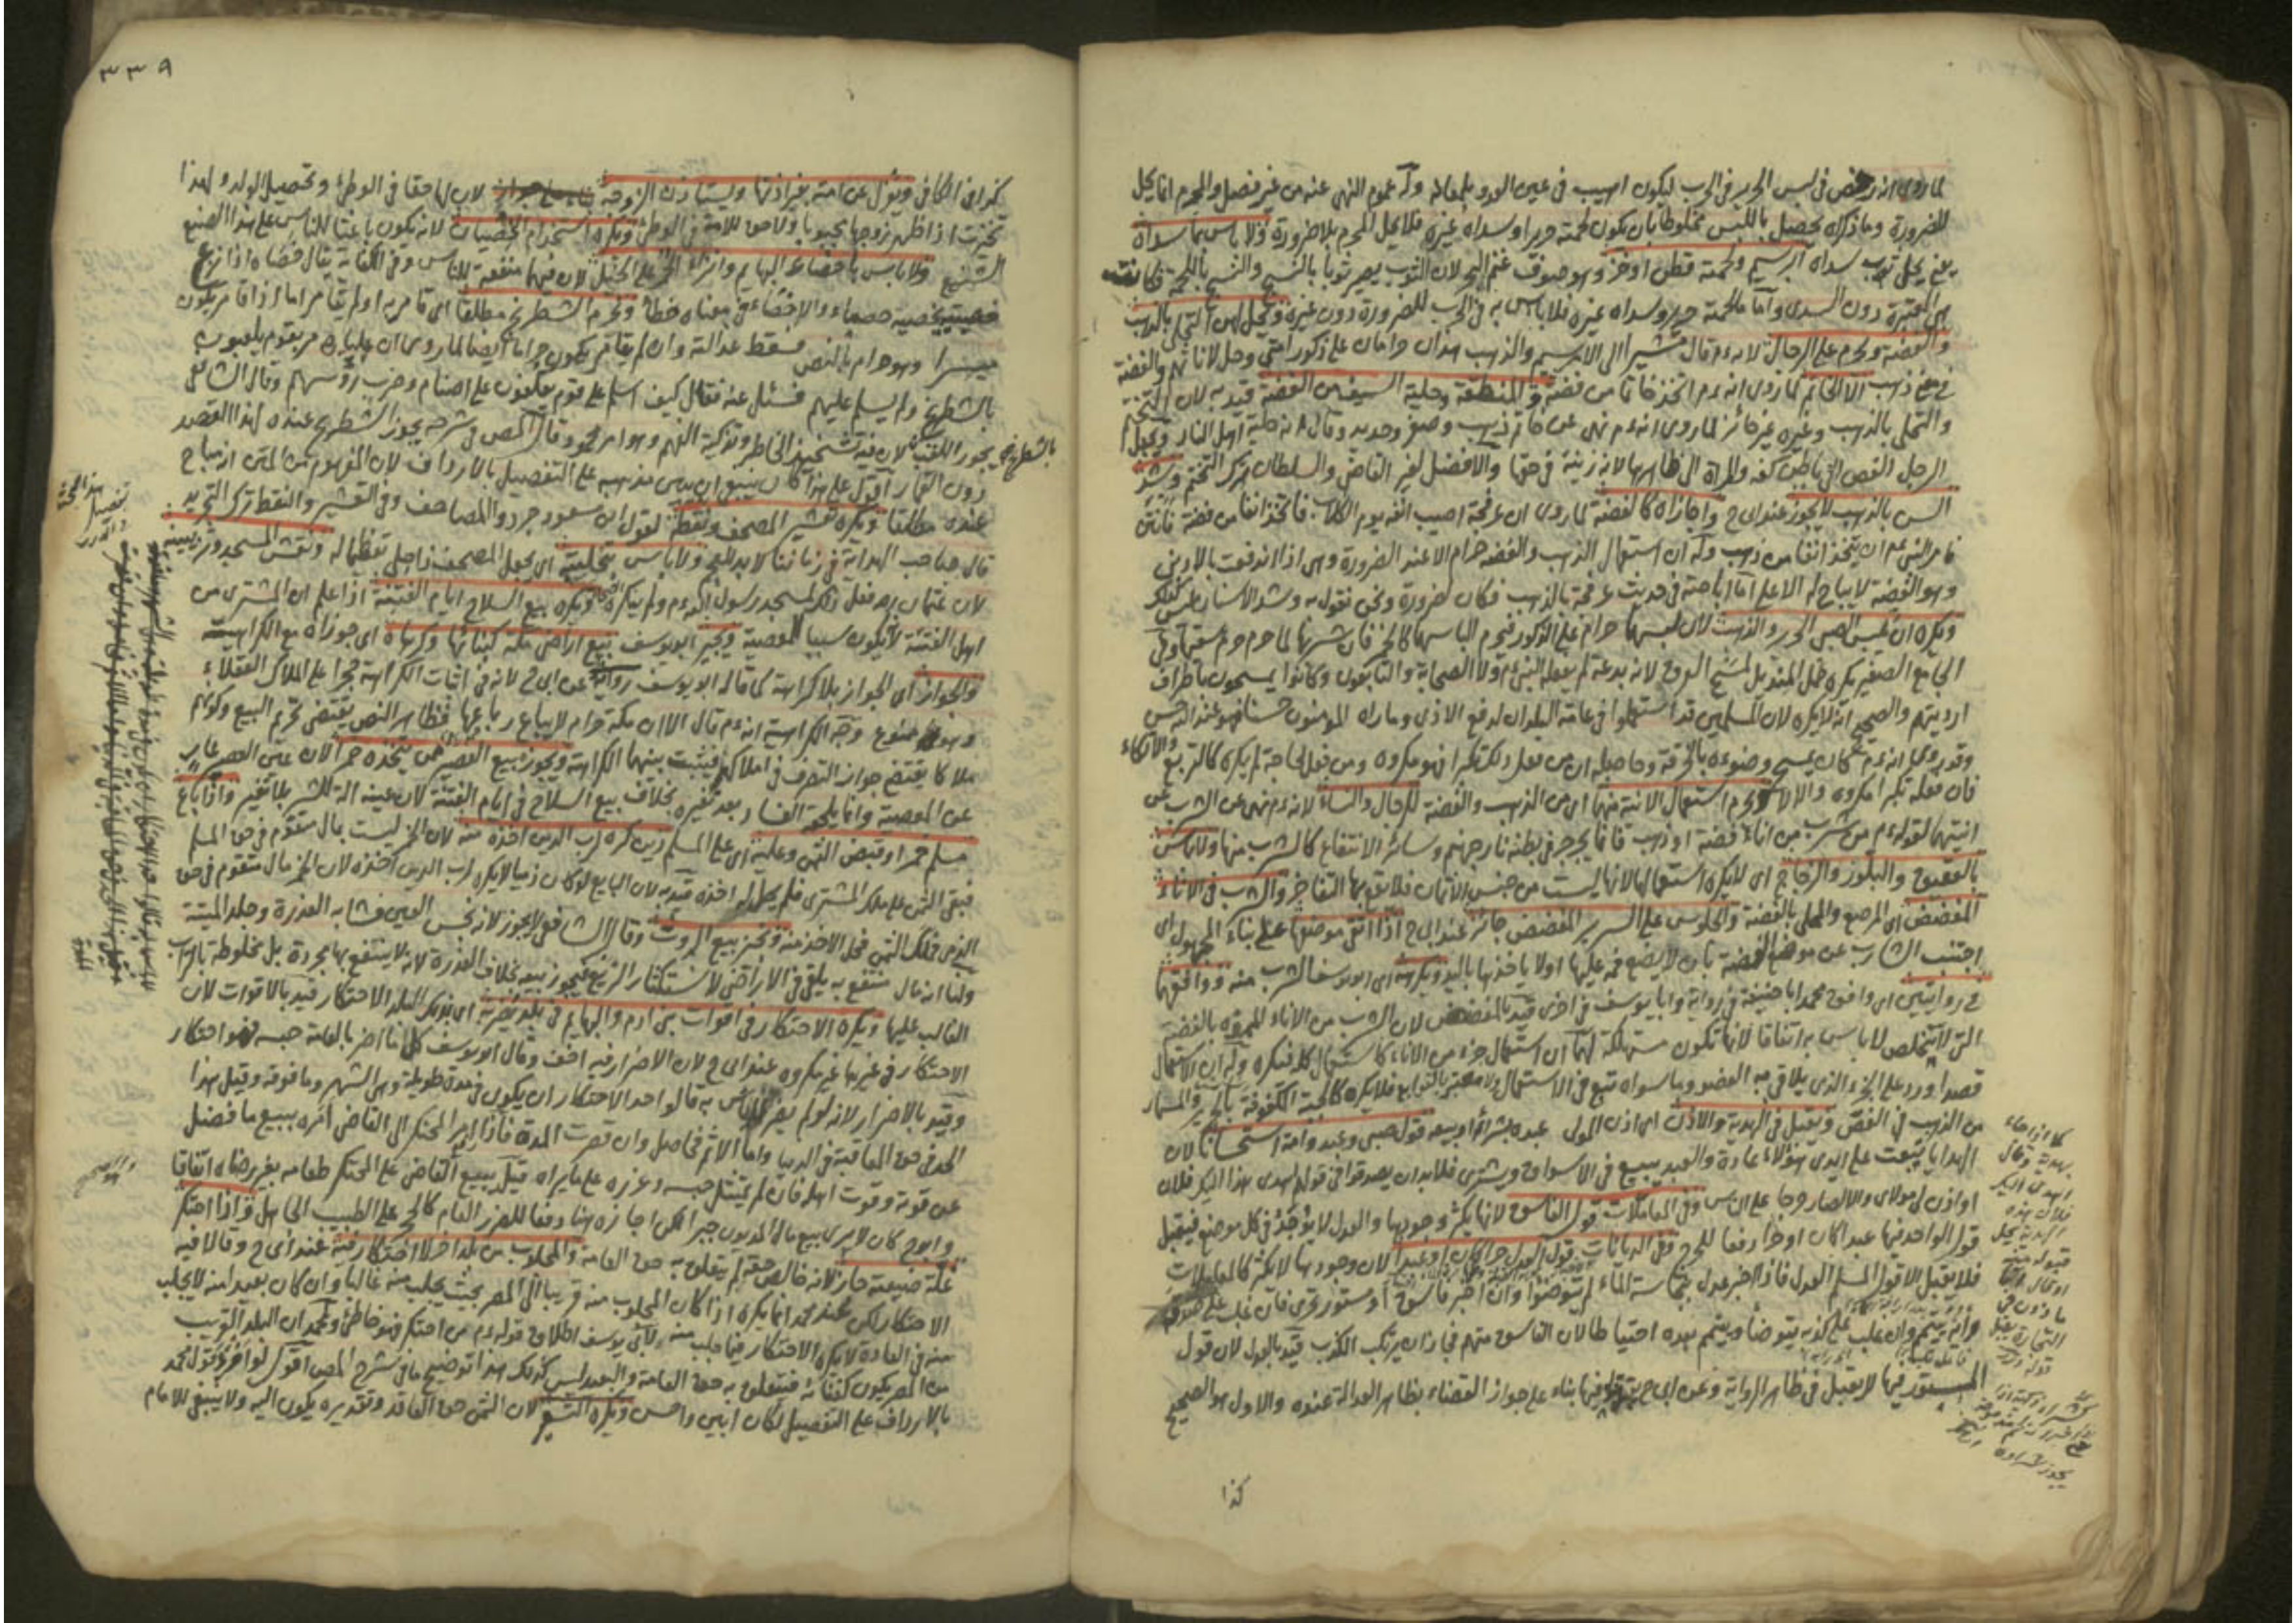 لما روي انه رخص في لبس الحرير في الحرب ليكون اهيب في عين العدو وله عموم النهي عنه من غير فصل والمحرم انما يحل
للضرورة وما ذكراه يحصل باللبس مخلوطا بان يكون لحمته حريرا وسداه غيره فلا يحل المحرم بلا ضرورة ولا باس بما سداه
يعني يحل ثوب سداه ابريسم ولحمته قطن او خز وهو صوف غنم البحر لان الثوب يصير ثوبا بالنسج والنسج باللحمة فكانت
هي المعتبرة دون السدى واما ما لحمته حرير وسداه غيره فلا باس به في الحرب للضرورة دون غيره وتحل لهن التحلي بالذهب
والفضة ويحرم على الرجال لانه عم قال مشيرا الى الابريسم والذهب هذان حرامان على ذكور امتي وحل لاناثهم والفضة
في معنى ذهب الا الخاتم لما روي انه عم اتخذ خاتما من فضة والمنطقة وحلية السيف من الفضة قيد به لان التختم
والتحلي بالذهب وغيره غير جائز لما روي انه عم نهى عن خاتم ذهب وصفر وحديد وقال انه حلية اهل النار ويجعل
الرجل الفص الى باطن كفه والمراة الى ظاهرها لانه زينة في حقها والافضل لغير القاضي والسلطان ترك التختم وشد
السن بالذهب لا يجوز عند ابي ح واجازاه كالفضة لما روي ان عرفجة اصيب انفه يوم الكلاب فاتخذ انفا من فضة فانتن
فامر النبي عم ان يتخذ انفا من ذهب وله ان استعمال الذهب والفضة حرام الا عند الضرورة وهي اذا اندفعت بالادنى
وهو الفضة لا يباح له الاعلى اما اباحته في حديث عرفجة بالذهب فكان لضرورة ونحن نقول به وشد الاسنان ليس كذلك
ويكره ان يلبس الصبي الحرير والذهب لان لبسهما حرام على الذكور فيحرم الباسهما كالخمر فان شربها لما حرم حرم سقيها وفي
الجامع الصغير يكره حمل المنديل لمسح العرق لانه بدعة لم يفعله النبي عم ولا الصحابة والتابعون وكانوا يمسحون باطراف
ارديتهم والصحيح انه لا يكره لان المسلمين قد استعملوا في عامة البلدان لدفع الاذى وما راه المؤمنون حسنا فهو عند الله حسن
وقد روي انه عم كان يمسح وضوءه بالخرقة وحاصله ان من فعل ذلك تكبرا فهو مكروه ومن فعل لحاجة لم يكره كالتربع والاتكاء
فان فعله تكبرا مكروه والا لا ويحرم استعمال الانية منهما اي من الذهب والفضة للرجال والنساء لانه عم نهى عن الشرب عن
انيتهما لقوله عم من شرب من اناء فضة او ذهب فانما يجرجر في بطنه نار جهنم وسائر الانتفاع كالشرب منها ولا باس
بالعقيق والبلور والزجاج اي لا يكره استعمالها لانها ليست من جنس الاثمان فلا يقع بها التفاخر والشرب في الاناء
المفضض اي المرصع والمحلى بالفضة والجلوس على السرير المفضض جائز عند ابي ح اذا اتقى موضعها على بناء المجهول اي
اجتنب الشارب عن موضع الفضة بان لا يضع فمه عليها او لا ياخذها باليد ويكرهه اي ابو يوسف الشرب منه ووافقهما
في روايتين اي وافق محمد ابا حنيفة في رواية وابا يوسف في اخرى قيد بالمفضض لان الشرب من الاناء المموه بالفضة
التي لا تتخلص لا باس به اتفاقا لانها تكون مستهلكة لهما ان استعمال جزء من الاناء كاستعمال كله فيكره وله ان الاستعمال
قصدا ورد على الجزء الذي يلاقي به العضو وما سواه تبع في الاستعمال ولا معتبر بالتوابع فلا يكره كالجبة المكفوفة بالحرير والمسمار
من الذهب في الفص ويقبل في الهدية والاذن اي اذن المولى عبده بشراء او بيع قول صبي وعبد وامة استحسانا لان
الهدايا تبعث على ايدي هؤلاء عادة والعبد يبيع في الاسواق ويشتري فلا بد ان يصدقوا في قولهم اهدى هذا اليك فلان
او اذن لي مولاي والا لصار حرجا على الناس وفي المعاملات قول الفاسق لانها يكثر وجودها والعدل لا يوجد في كل موضع فيقبل
قول الواحد فيها عبدا كان او حرا دفعا للحرج وفي الديانات قول العدل حرا كان او عبدا لان وجودها لا يكثر كالمعاملات
فلا يقبل الا قول المسلم العدل فاذا اخبر عدل بنجاسة الماء لم يتوضؤا وان اخبر فاسق او مستور تحرى فان غلب على صدقه
فانه يتيمم وان غلب على كذبه يتوضأ ويتيمم بعده احتياطا لان الفاسق متهم فجاز ان يرتكب الكذب قيد بالعدل لان قول
المستور فيها لا يقبل في ظاهر الرواية وعن ابي ح يقبل فيها بناء على جواز القضاء بظاهر العدالة عنده والاول هو الصحيح
كذا
كما اذا جاء
بهدية وقال
اهدى اليك
فلان هذه
الهدية يحل
قبوله منه
او قال انا
ماذون في
التجارة يقبل
قوله
٣٣٩
كذا في الكافي ويعزل عن امته بغير اذنها ويستاذن الزوجة لان لها حقا في الوطئ وتحصيل الولد ولهذا
تخيرت اذا ظهر زوجها مجبوبا ولا حق للامة في الوطئ ويكره استخدام الخصيان لانه يكون باعثا للناس على هذا الصنيع
الشنيع ولا باس باخصاء البهايم وانزاء الحمر على الخيل لان فيهما منفعة للناس وفي الكفاية يقال خصاه اذا نزع
خصيتيه يخصيه خصاء والاخصاء في معناه خطأ ويحرم الشطرنج مطلقا اي قامر به او لم يقامر اما اذا قامر يكون
ميسرا وهو حرام بالنص فسقط عدالته وان لم يقامر يكون حراما ايضا لما روي ان عليا رض مر بقوم يلعبون
بالشطرنج ولم يسلم عليهم فسئل عنه فقال كيف اسلم على قوم يعكفون على اصنام وضرب رؤسهم وقال الشافعي
يجوز اللعب بالشطرنج لان فيه تشحيذ الخاطر وتذكية الفهم وهو امر محمود وقال المص في شرحه يجوز الشطرنج عنده لهذا القصد
دون القمار اقول على هذا كان ينبغي ان يبين مذهبه على التفصيل بالارداف لان المفهوم من المتن انه مباح
عنده مطلقا ويكره تعشير المصحف ونقطه لقول ابن مسعود جردوا المصاحف وفي التعشير والنقط ترك التجريد
قال صاحب الهداية في زماننا لا بد للعجم ولا باس بتحليته اي بجعل المصحف ذا حلي تعظيما له ونقش المسجد وتزيينه
لان عثمان رض فعل ذلك لمسجد رسول الله عم ولم ينكره ويكره بيع السلاح ايام الفتنة اذا علم ان المشتري من
اهل الفتنة لانه يكون سببا للمعصية ويجيز ابو يوسف بيع اراضي مكة كبنائها وكرهاه اي جوزاه مع الكراهية
والجواز اي الجواز بلا كراهة كما قاله ابو يوسف رواية عن ابي ح لانه في اثبات الكراهة حجرا على الملاك العقلاء
وهو ممنوع وجه الكراهية انه عم قال الا ان مكة حرام لا يباع رباعها فظاهر النص يقتضي تحريم البيع وكونها
ملكا يقتضي جواز التصرف في املاكهم فيثبت بينهما الكراهة ويجوز بيع العصير ممن يتخذه خمرا لان عين العصير عار
عن المعصية وانما يلحقه الفساد بعد تغيره بخلاف بيع السلاح في ايام الفتنة لان عينه الة للشر بلا تغير واذا باع
مسلم خمرا وقبض الثمن وعليه اي على المسلم دين كره لرب الدين اخذه منه لان الخمر ليست بمال متقوم في حق المسلم
فبقي الثمن على ملك المشتري فلم يحل له اخذه قيد به لان البايع لو كان ذميا لا يكره لرب الدين اخذه لان الخمر مال متقوم في حق
الذمي فملك الثمن فحل الاخذ منه ونجيز بيع الروث وقال الشافعي لا يجوز لانه نجس العين فشابه العذرة وجلد الميتة
ولنا انه مال منتفع به يلقى في الاراضي لاستكثار الريع فيجوز بيعه بخلاف العذرة لانه لا ينتفع بها مجردة بل مخلوطة بالتراب
الغالب عليها ويكره الاحتكار في اقوات بني ادم والبهايم في بلد يضر به اي بذلك البلد الاحتكار قيد بالاقوات لان
الاحتكار في غيرها غير مكروه عند ابي ح لان الاضرار فيه اخف وقال ابو يوسف كل ما اضر بالعامة حبسه فهو احتكار
وقيد بالاضرار لانه لو لم يضر لا باس به قالوا حد الاحتكار ان يكون في مدة طويلة وهي الشهر وما فوقه وقيل هذا
الحد في حق المعاقبة في الدنيا واما الاثم فحاصل وان قصرت المدة فاذا رفع امر المحتكر الى القاضي امره ببيع ما فضل
عن قوته وقوت اهله فان لم يمتثل حبسه وعزره على ما يراه قيل يبيع القاضي على المحتكر طعامه بغير رضاه اتفاقا
وابو ح كان لا يرى بيع مال المديون جبرا لكن اجازه هنا دفعا للضرر العام كالحجر على الطبيب الجاهل واذا احتكر
غلة ضيعته جاز لانه خالص حقه لم يتعلق به حق العامة والمجلوب من بلد اخر لا احتكار فيه عند ابي ح وقالا فيه
الاحتكار لكن عند محمد انما يكره اذا كان المجلوب منه قريبا الى المصر بحيث يجلب منه غالبا وان كان بعيدا منه لا يجلب
منه في العادة لا يكره الاحتكار فيما جلب منه ولابي يوسف اطلاق قوله عم من احتكر فهو خاطئ ولمحمد ان البلد القريب
من المصر يكون كفنائه فيتعلق به حق العامة والبعيد ليس كذلك هذا توضيح ما في شرح المص اقول لو افرد قول محمد
بالارداف على التفصيل لكان ابين واحسن ويكره التسعير لان الثمن حق العاقد وتقديره يكون اليه ولا ينبغي للامام